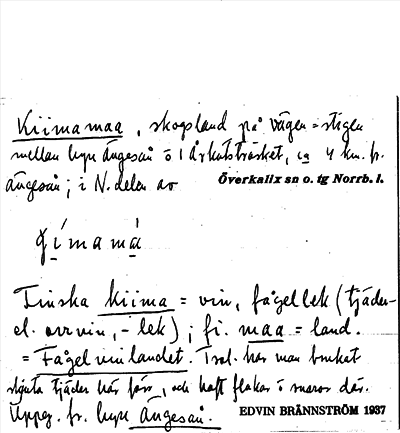 Kiimamaa, skogsland på vägen = stigen
mellan byn Ängeså o
ca 4 km. fr.
Ängeså; i N. delen av Överkalix sn o. tg Norrb. l.
gímamá
Finska kiima = vin, fågellek (tjäder-
el. orrvin, -lek); fi. maa = land.
= Fågelvinlandet. Trol. har man brukat
skjuta tjäder här förr, och haft flakar o snaror där.
Uppg. fr. byn Ängeså. EDVIN BRÄNNSTRÖM 1937